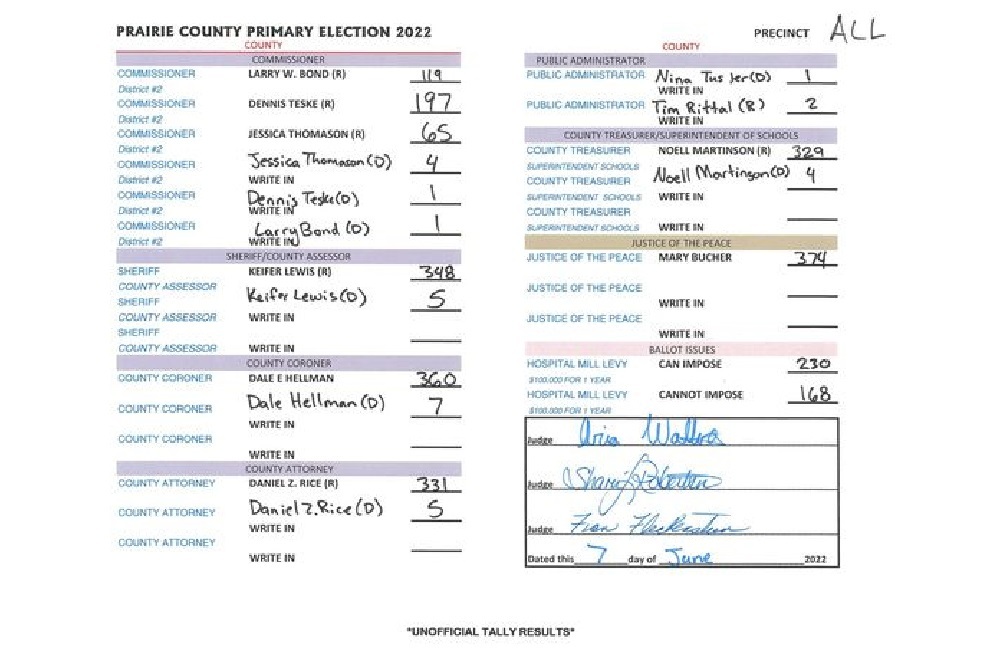 PRAIRIE COUNTY PRIMARY ELECTION 2022
PRECINCT ALL
COUNTY
COMMISSIONER
COMMISSIONER LARRY W. BOND (R) 119
District #2
COMMISSIONER DENNIS TESKE (R) 197
District #2
COMMISSIONER JESSICA THOMASON (R) 65
District #2
COMMISSIONER Jessica Thomason (D) 4
District #2 WRITE IN
COMMISSIONER Dennis Teske (D) 1
District #2 WRITE IN
COMMISSIONER Larry Bond (D) 1
District #2 WRITE IN
SHERIFF/COUNTY ASSESSOR
SHERIFF KEIFER LEWIS (R) 348
COUNTY ASSESSOR
SHERIFF Keifer Lewis (D) 5
COUNTY ASSESSOR WRITE IN
SHERIFF
COUNTY ASSESSOR WRITE IN
COUNTY CORONER
COUNTY CORONER DALE E HELLMAN 360
COUNTY CORONER Dale Hellman (D) 7
WRITE IN
COUNTY CORONER
WRITE IN
COUNTY ATTORNEY
COUNTY ATTORNEY DANIEL Z. RICE (R) 331
COUNTY ATTORNEY Daniel Z. Rice (D) 5
WRITE IN
COUNTY ATTORNEY
WRITE IN
COUNTY
PUBLIC ADMINISTRATOR
PUBLIC ADMINISTRATOR Nina Tusler (D) 1
WRITE IN
PUBLIC ADMINISTRATOR Tim Rittal (R) 2
WRITE IN
COUNTY TREASURER/SUPERINTENDENT OF SCHOOLS
COUNTY TREASURER NOELL MARTINSON (R) 329
SUPERINTENDENT SCHOOLS
COUNTY TREASURER Noell Martinson (D) 4
SUPERINTENDENT SCHOOLS WRITE IN
COUNTY TREASURER
SUPERINTENDENT SCHOOLS WRITE IN
JUSTICE OF THE PEACE
JUSTICE OF THE PEACE MARY BUCHER 374
JUSTICE OF THE PEACE
WRITE IN
JUSTICE OF THE PEACE
WRITE IN
BALLOT ISSUES
HOSPITAL MILL LEVY CAN IMPOSE 230
$100.000 FOR 1 YEAR
HOSPITAL MILL LEVY CANNOT IMPOSE 168
$100.000 FOR 1 YEAR
Judge
Judge
Judge
Dated this 7 day of June 2022
*UNOFFICIAL TALLY RESULTS*